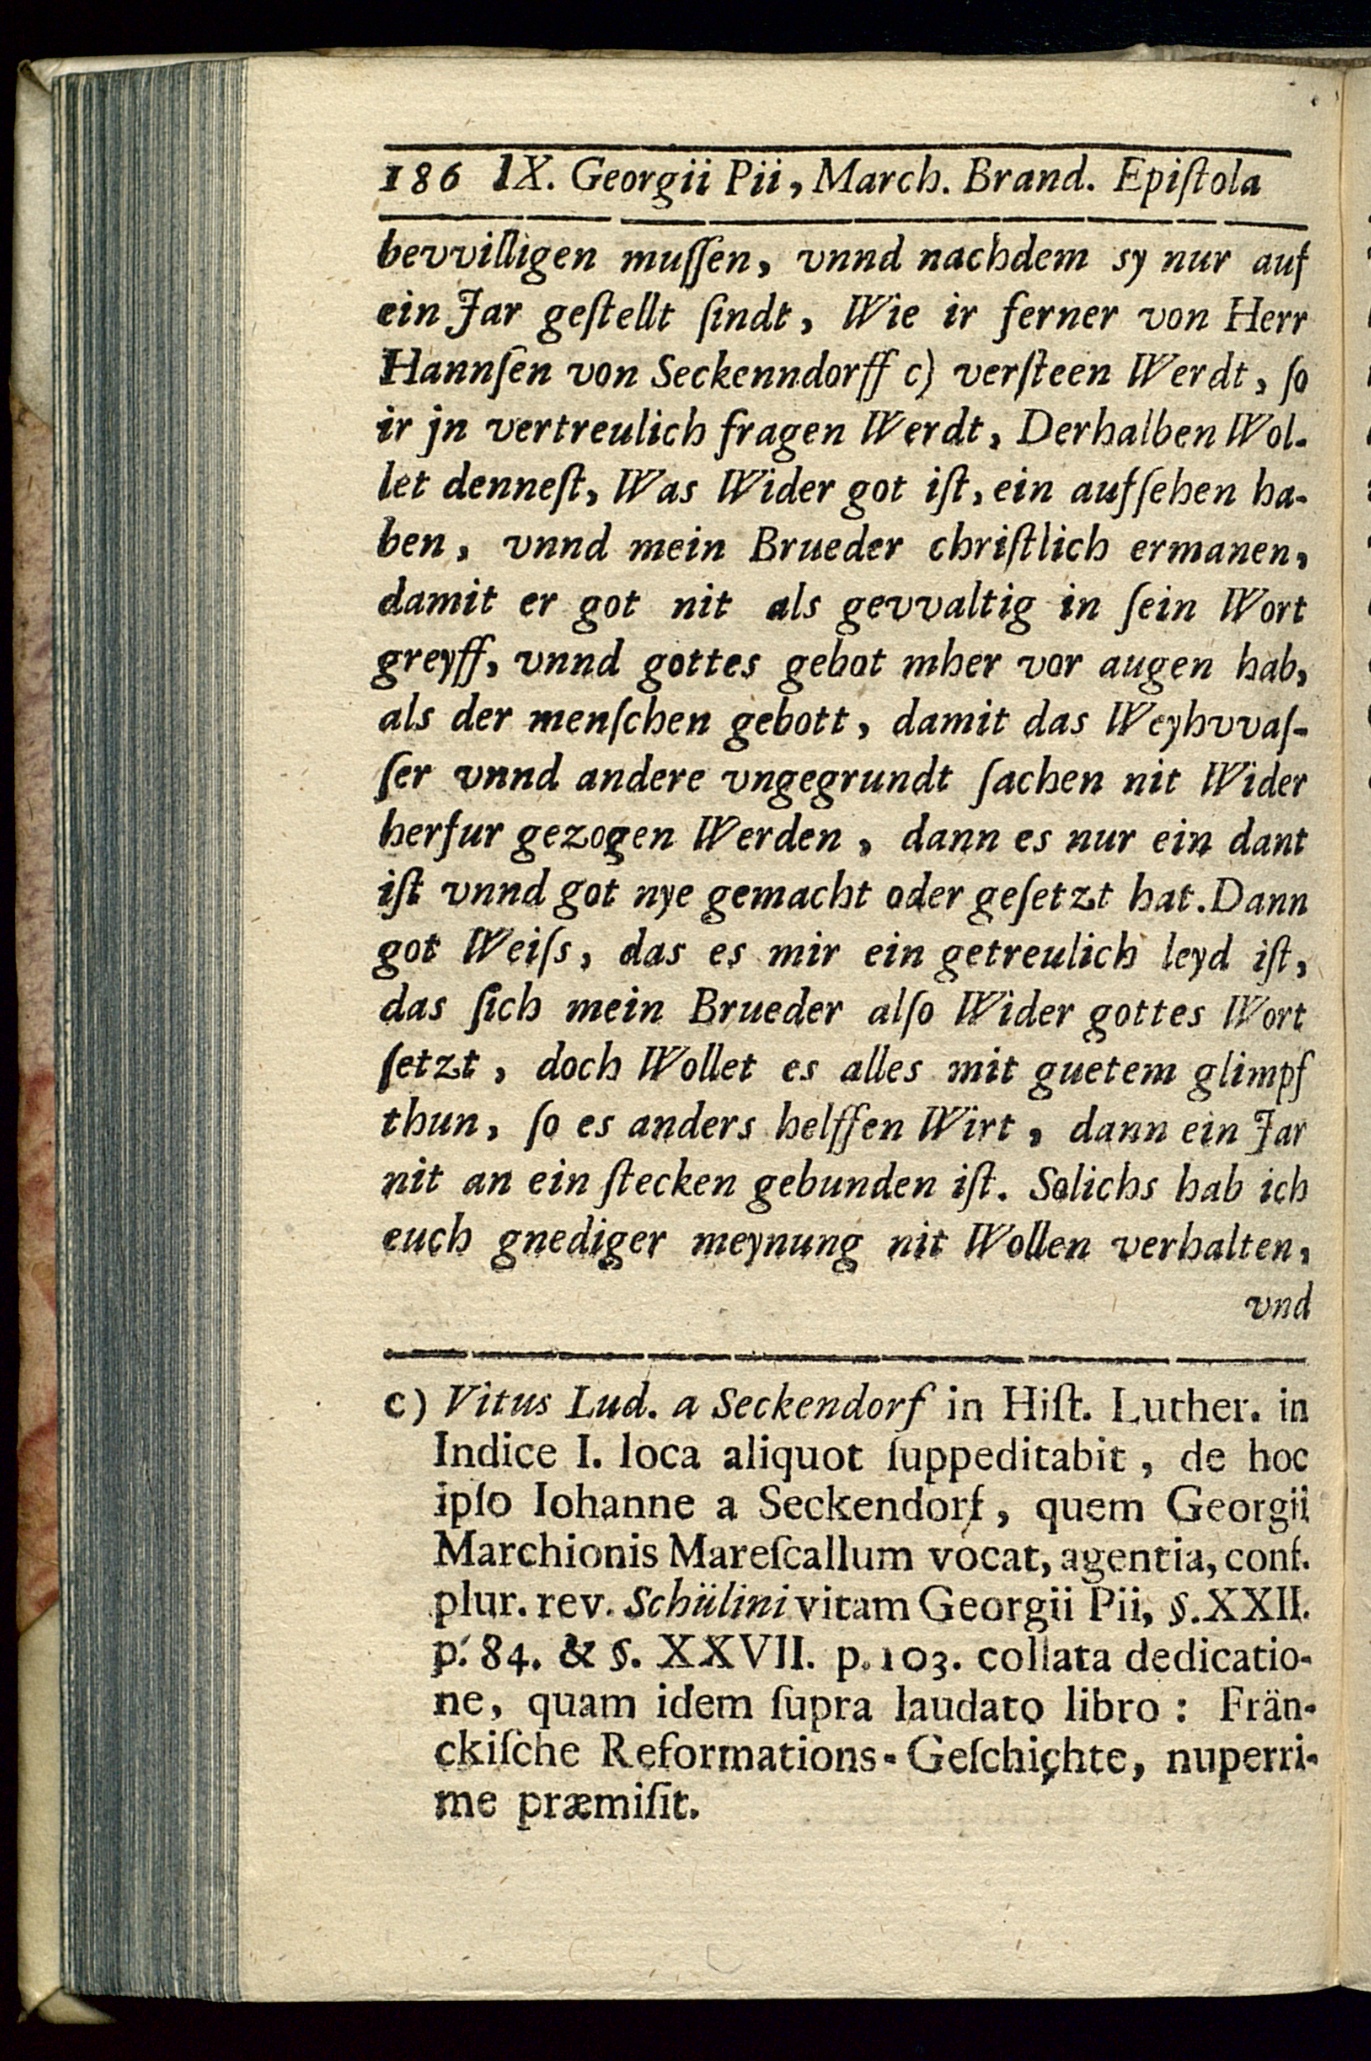 186 IX. Georgii Pii, March. Brand. Epiſtola
bevvilligen muſſen, vnnd nachdem sy nur auf
ein Jar geſtellt ſindt, Wie ir ferner von Herr
Hannſen von Seckenndorff c) verſteen Werdt, ſo
ir jn vertreulich fragen Werdt, Derhalben Wol-
let denneſt, Was Wider got iſt, ein aufſehen ha-
ben, vnnd mein Brueder chriſtlich ermanen,
damit er got nit als gevvaltig in ſein Wort
greyff, vnnd gottes gebot mher vor augen hab,
als der menſchen gebott, damit das Weyhvvaſ-
ſer vnnd andere vngegrundt ſachen nit Wider
herfur gezogen Werden, dann es nur ein dant
iſt vnnd got nye gemacht oder geſetzt hat. Dann
got Weiſs, das es mir ein getreulich leyd iſt,
das ſich mein Brueder alſo Wider gottes Wort
ſetzt, doch Wollet es alles mit guetem glimpf
thun, ſo es anders helffen Wirt, dann ein Jar
nit an ein ſtecken gebunden iſt. Solichs hab ich
euch gnediger meynung nit Wollen verhalten,
vnd
c) Vitus Lud. a Seckendorf in Hiſt. Luther. in
Indice I. loca aliquot ſuppeditabit, de hoc
ipſo Iohanne a Seckendorf, quem Georgii
Marchionis Mareſcallum vocat, agentia, conf.
plur. rev. Schülini vitam Georgii Pii, §. XXII.
p. 84. & §. XXVII. p. 103. collata dedicatio-
ne, quam idem ſupra laudato libro: Frän-
ckiſche Reformations-Geſchichte, nuperri-
me præmiſit.